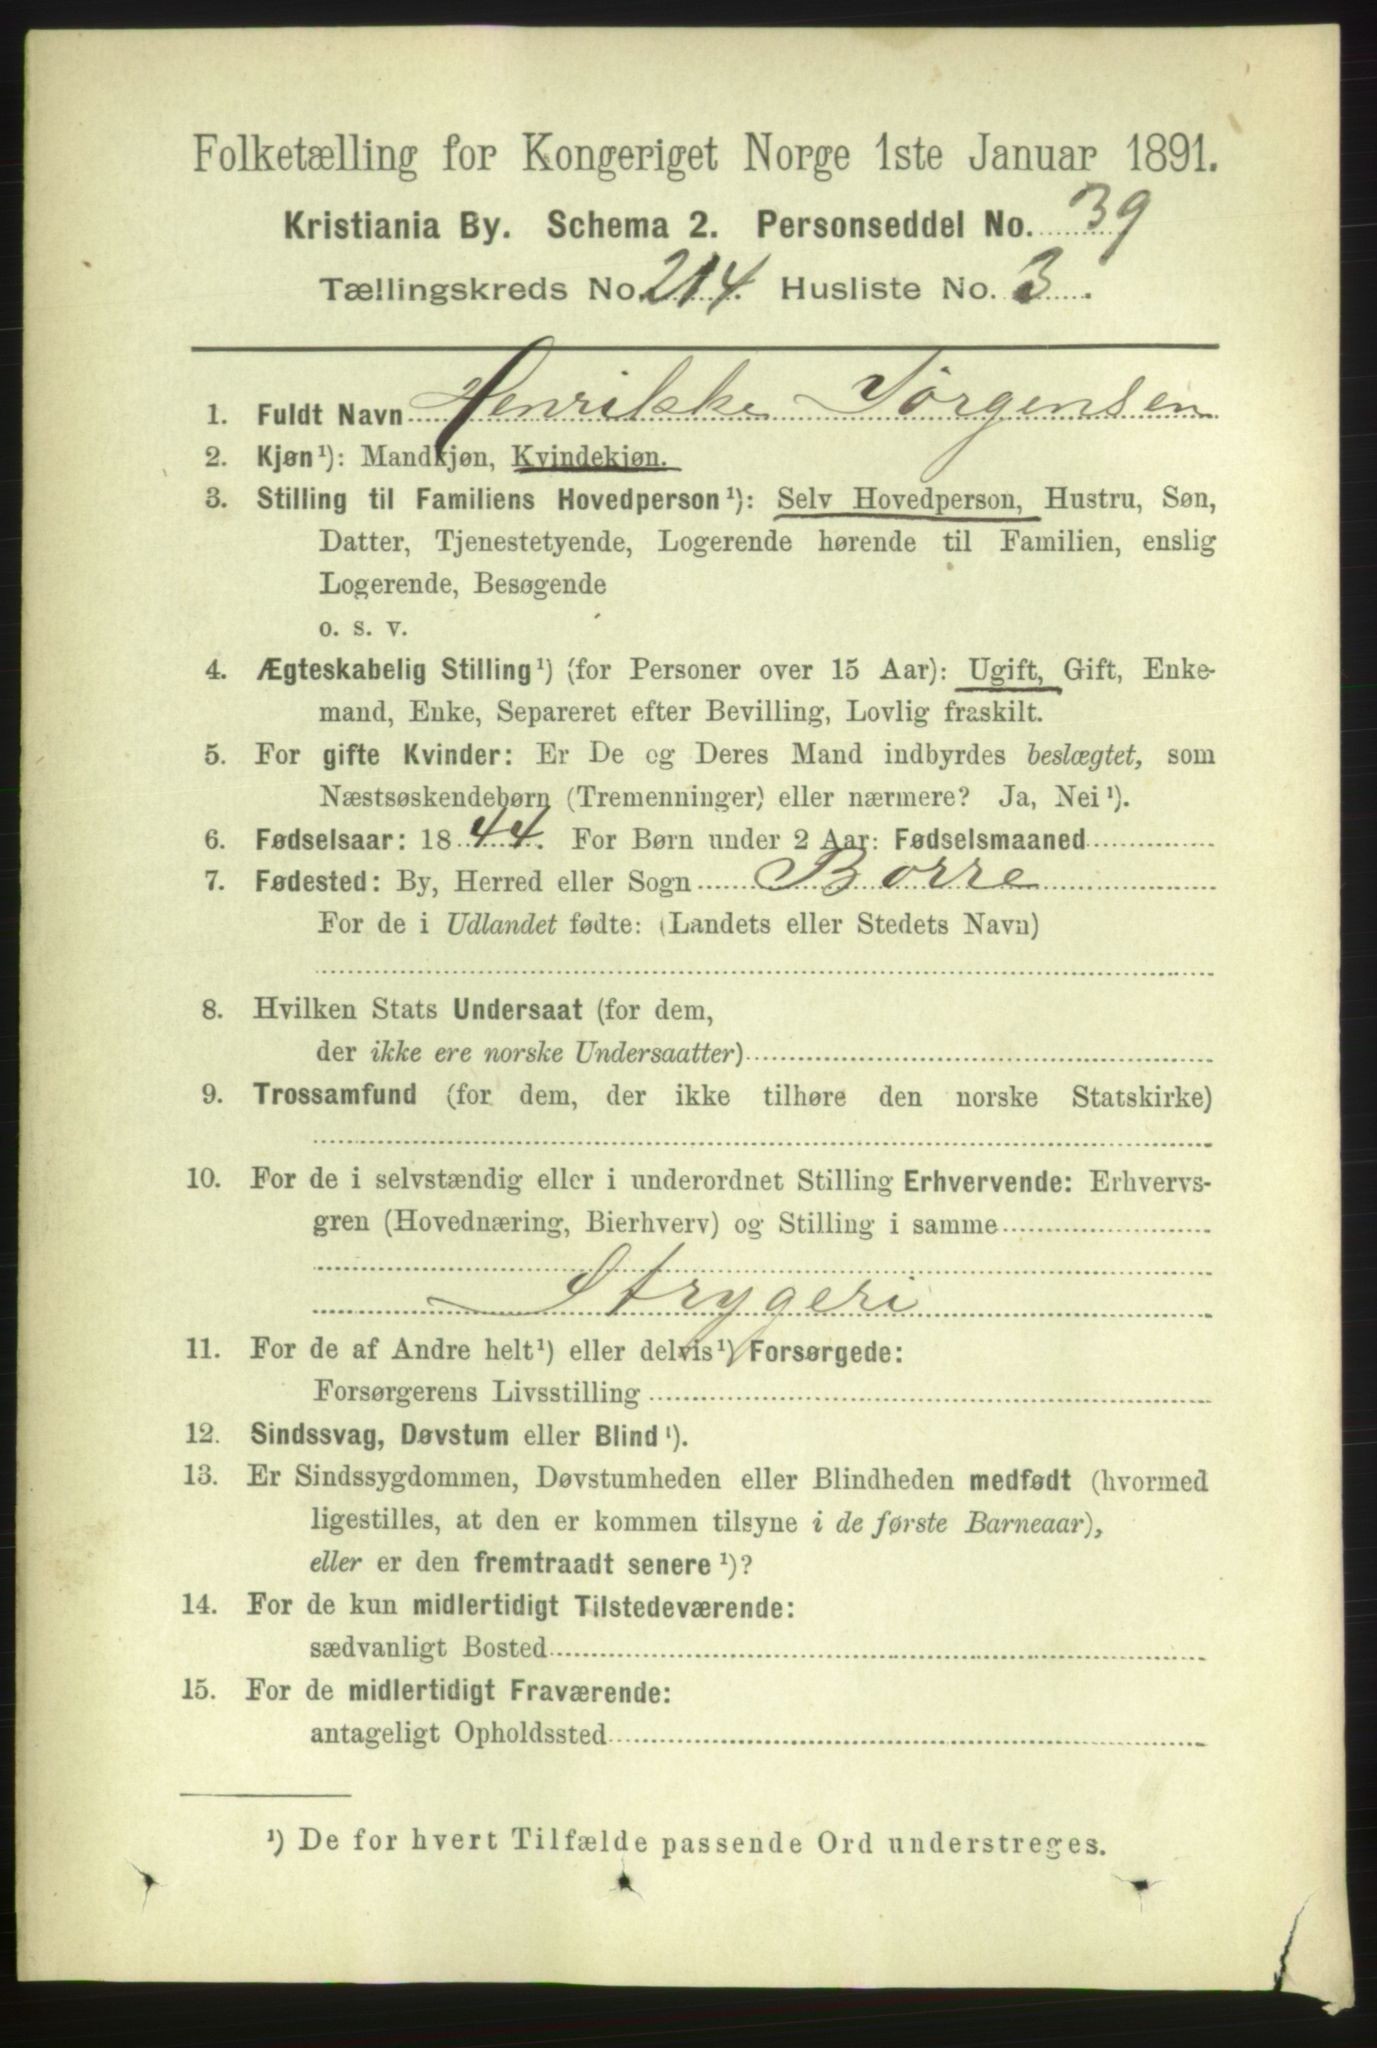 Folketælling for Kongeriget Norge 1ste Januar 1891.
Kristiania By. Schema 2. Personseddel No. 39
Tællingskreds No. 214. Husliste No. 3.
1. Fuldt Navn Henrikke Jörgensen
2. Kjøn¹): Mandkjøn, Kvindekjøn.
3. Stilling til Familiens Hovedperson¹): Selv Hovedperson, Hustru, Søn,
Datter, Tjenestetyende, Logerende hørende til Familien, enslig
Logerende, Besøgende
o. s. v.
4. Ægteskabelig Stilling¹) (for Personer over 15 Aar): Ugift, Gift, Enke-
mand, Enke, Separeret efter Bevilling, Lovlig fraskilt.
5. For gifte Kvinder: Er De og Deres Mand indbyrdes beslægtet, som
Næstsøskendebørn (Tremenninger) eller nærmere? Ja, Nei¹).
6. Fødselsaar: 1844. For Børn under 2 Aar: Fødselsmaaned
7. Fødested: By, Herred eller Sogn Borre
For de i Udlandet fødte: (Landets eller Stedets Navn)
8. Hvilken Stats Undersaat (for dem,
der ikke ere norske Undersaatter)
9. Trossamfund (for dem, der ikke tilhøre den norske Statskirke)
10. For de i selvstændig eller i underordnet Stilling Erhvervende: Erhvervs-
gren (Hovednæring, Bierhverv) og Stilling i samme
Strygeri
11. For de af Andre helt¹) eller delvis¹) Forsørgede:
Forsørgerens Livsstilling
12. Sindssvag, Døvstum eller Blind¹).
13. Er Sindssygdommen, Døvstumheden eller Blindheden medfødt (hvormed
ligestilles, at den er kommen tilsyne i de første Barneaar),
eller er den fremtraadt senere¹)?
14. For de kun midlertidigt Tilstedeværende:
sædvanligt Bosted
15. For de midlertidigt Fraværende:
antageligt Opholdssted
¹) De for hvert Tilfælde passende Ord understreges.